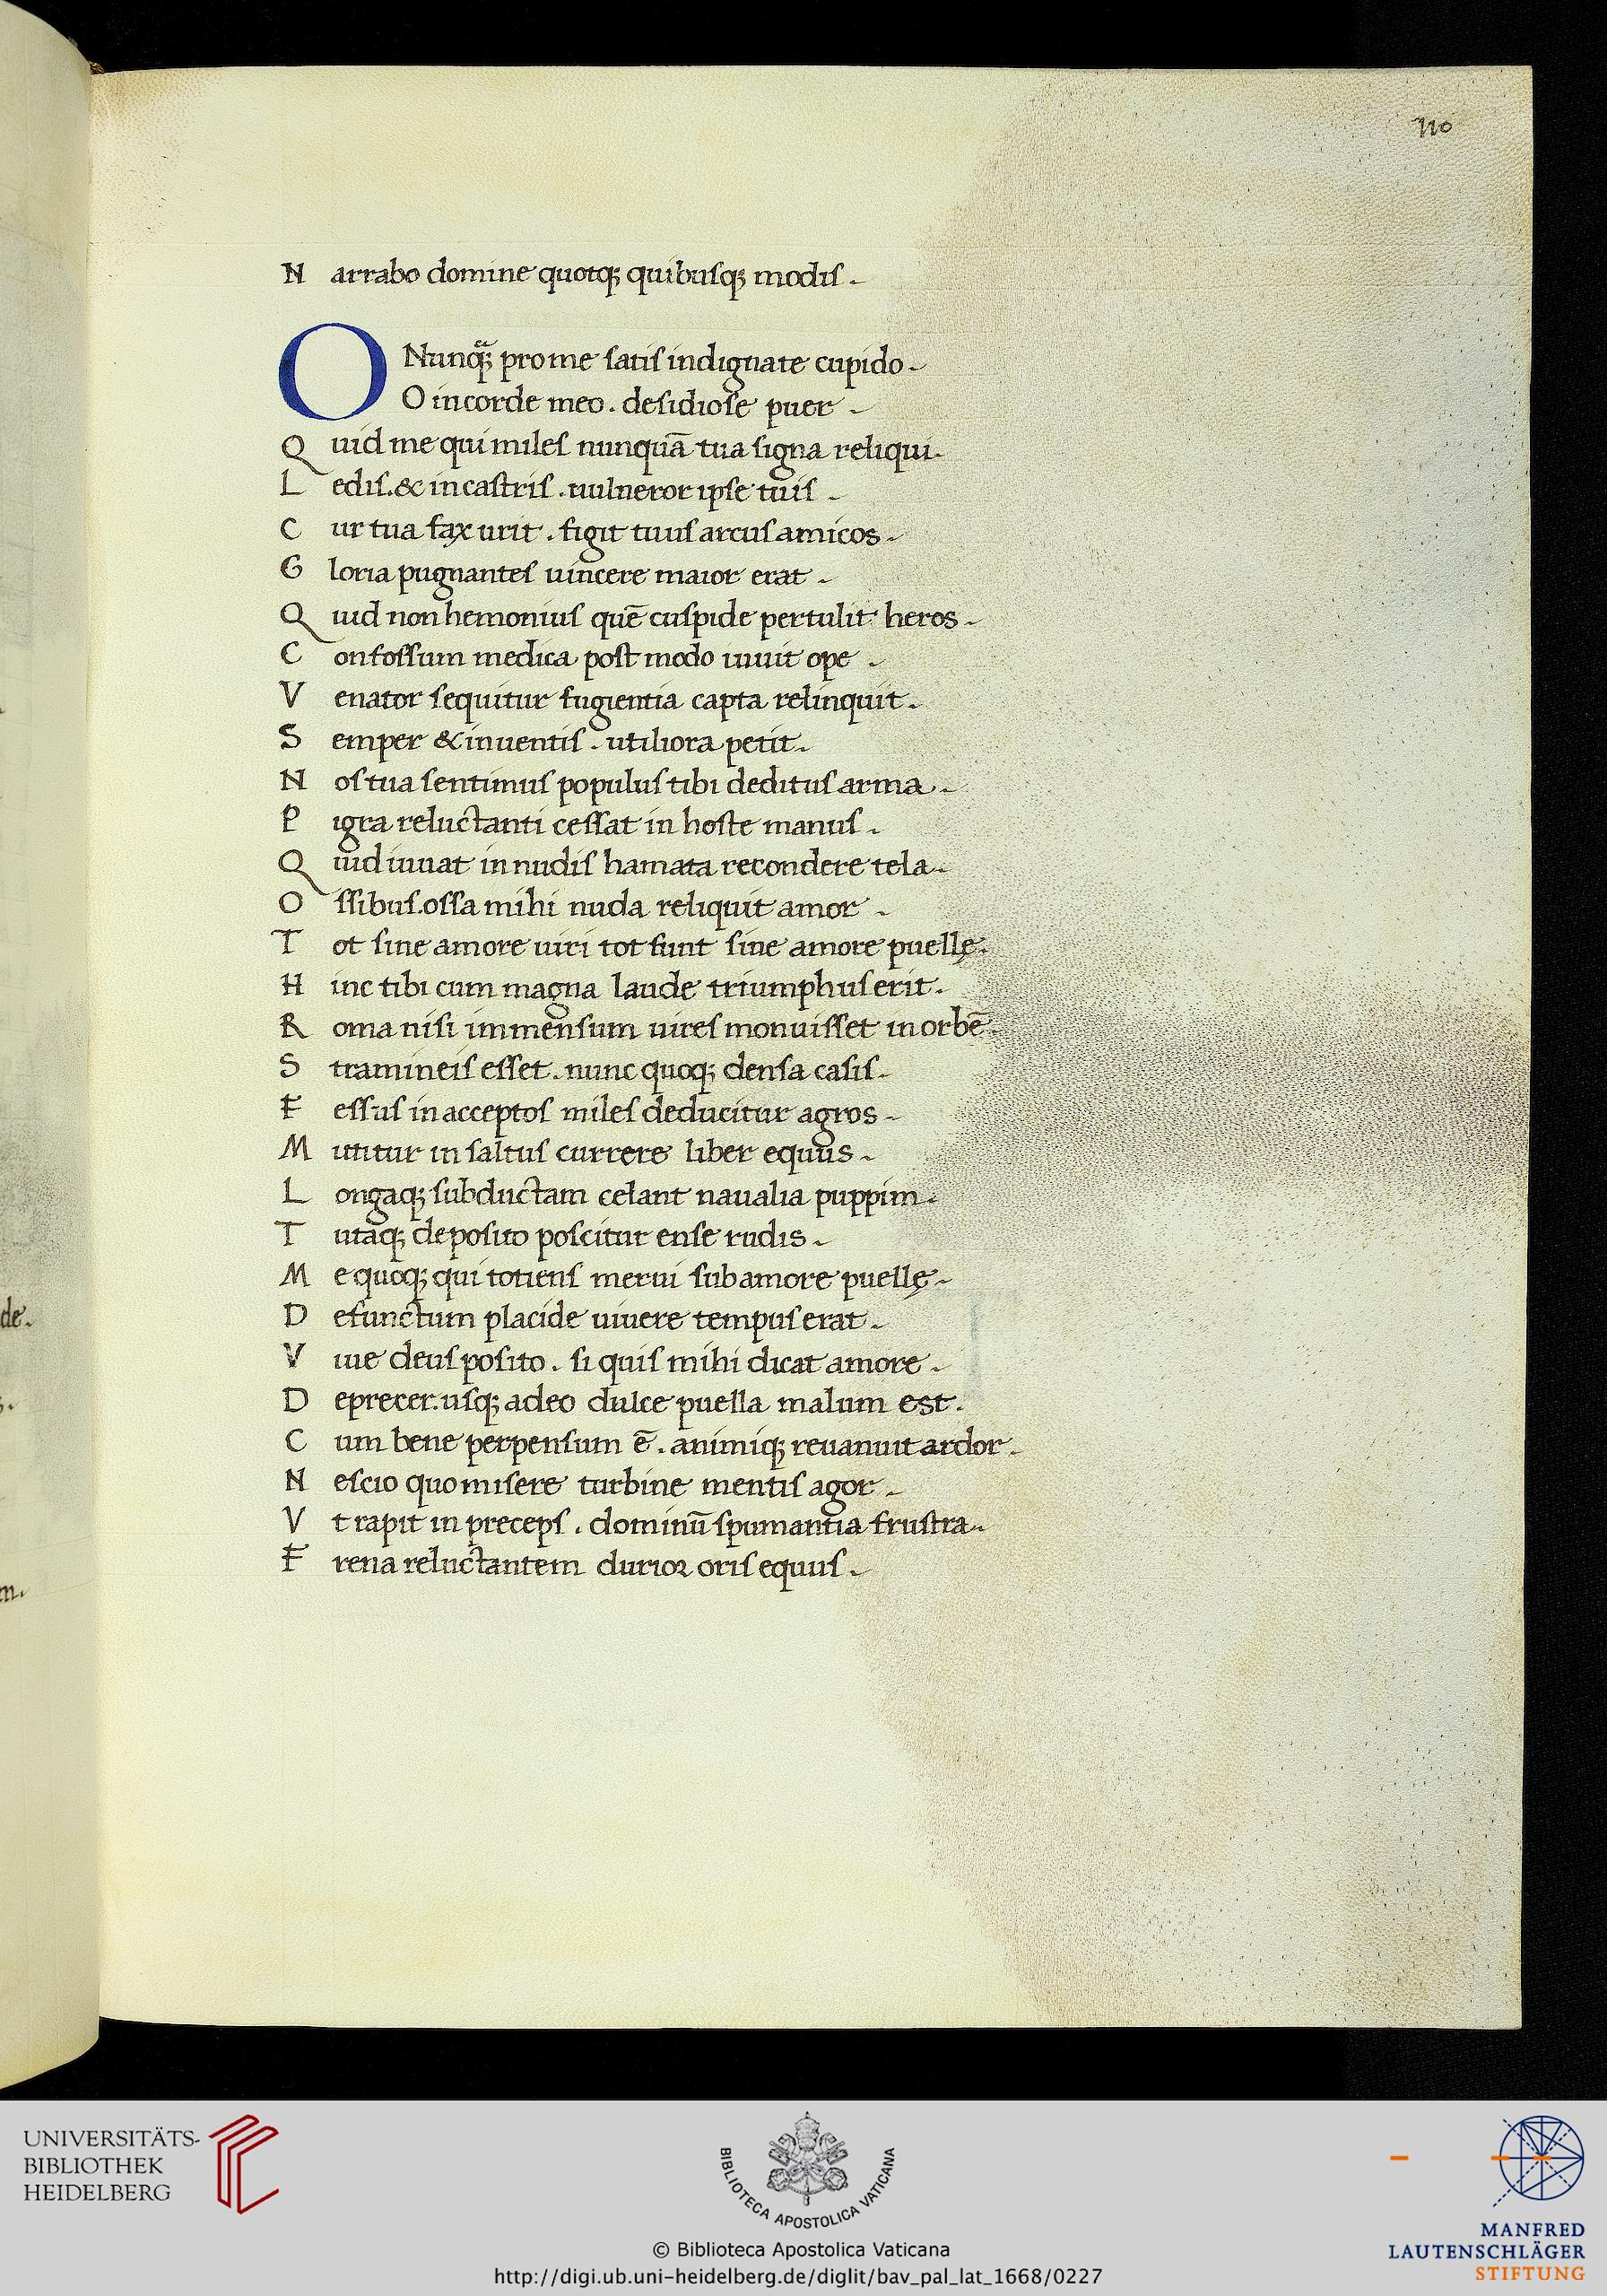 110
N arrabo domine quotq; quibusq; modis.
O Nunq̃ pro me satis indignate cupido.
O in corde meo. desidiose puer.
Q uid me qui miles nunquā tua signa reliqui.
L edis. & in castris. uulneror ipse tuis.
C ur tua fax urit. figit tuus arcus amicos.
G loria pugnantes uincere maior erat.
Q uid non hemonius quē cuspide pertulit heros.
C onfossum medica post modo iuuit ope.
V enator sequitur fugientia capta relinquit.
S emper & inuentis. utiliora petit.
N os tua sentimus populus tibi deditus arma.
P igra reluctanti cessat in hoste manus.
Q uid iuuat in nudis hamata recondere tela.
O ssibus. ossa mihi nuda reliquit amor.
T ot sine amore uiri tot sunt sine amore puellę.
H inc tibi cum magna laude triumphus erit.
R oma nisi immensum uires monuisset in orbē.
S tramineis esset. nunc quoq; densa casis.
F essus in acceptos miles deducitur agros.
M utitur in saltus currere liber equus.
L ongaq; subductam celant naualia puppim.
T utaq; deposito poscitur ense rudis.
M e quoq; qui totiens merui sub amore puellę.
D efunctum placide uiuere tempus erat.
V iue deus posito. si quis mihi dicat amore.
D eprecer. usq; adeo dulce puella malum est.
C um bene perpensum ē. animiq; reuanuit ardor.
N escio quo misere turbine mentis agor.
V t rapit in preceps. dominū spumantia frustra.
F rena reluctantem durior oris equus.
de.
m.
UNIVERSITÄTS-
BIBLIOTHEK
HEIDELBERG
BIBLIOTECA APOSTOLICA VATICANA
© Biblioteca Apostolica Vaticana
http://digi.ub.uni-heidelberg.de/diglit/bav_pal_lat_1668/0227
MANFRED
LAUTENSCHLÄGER
STIFTUNG